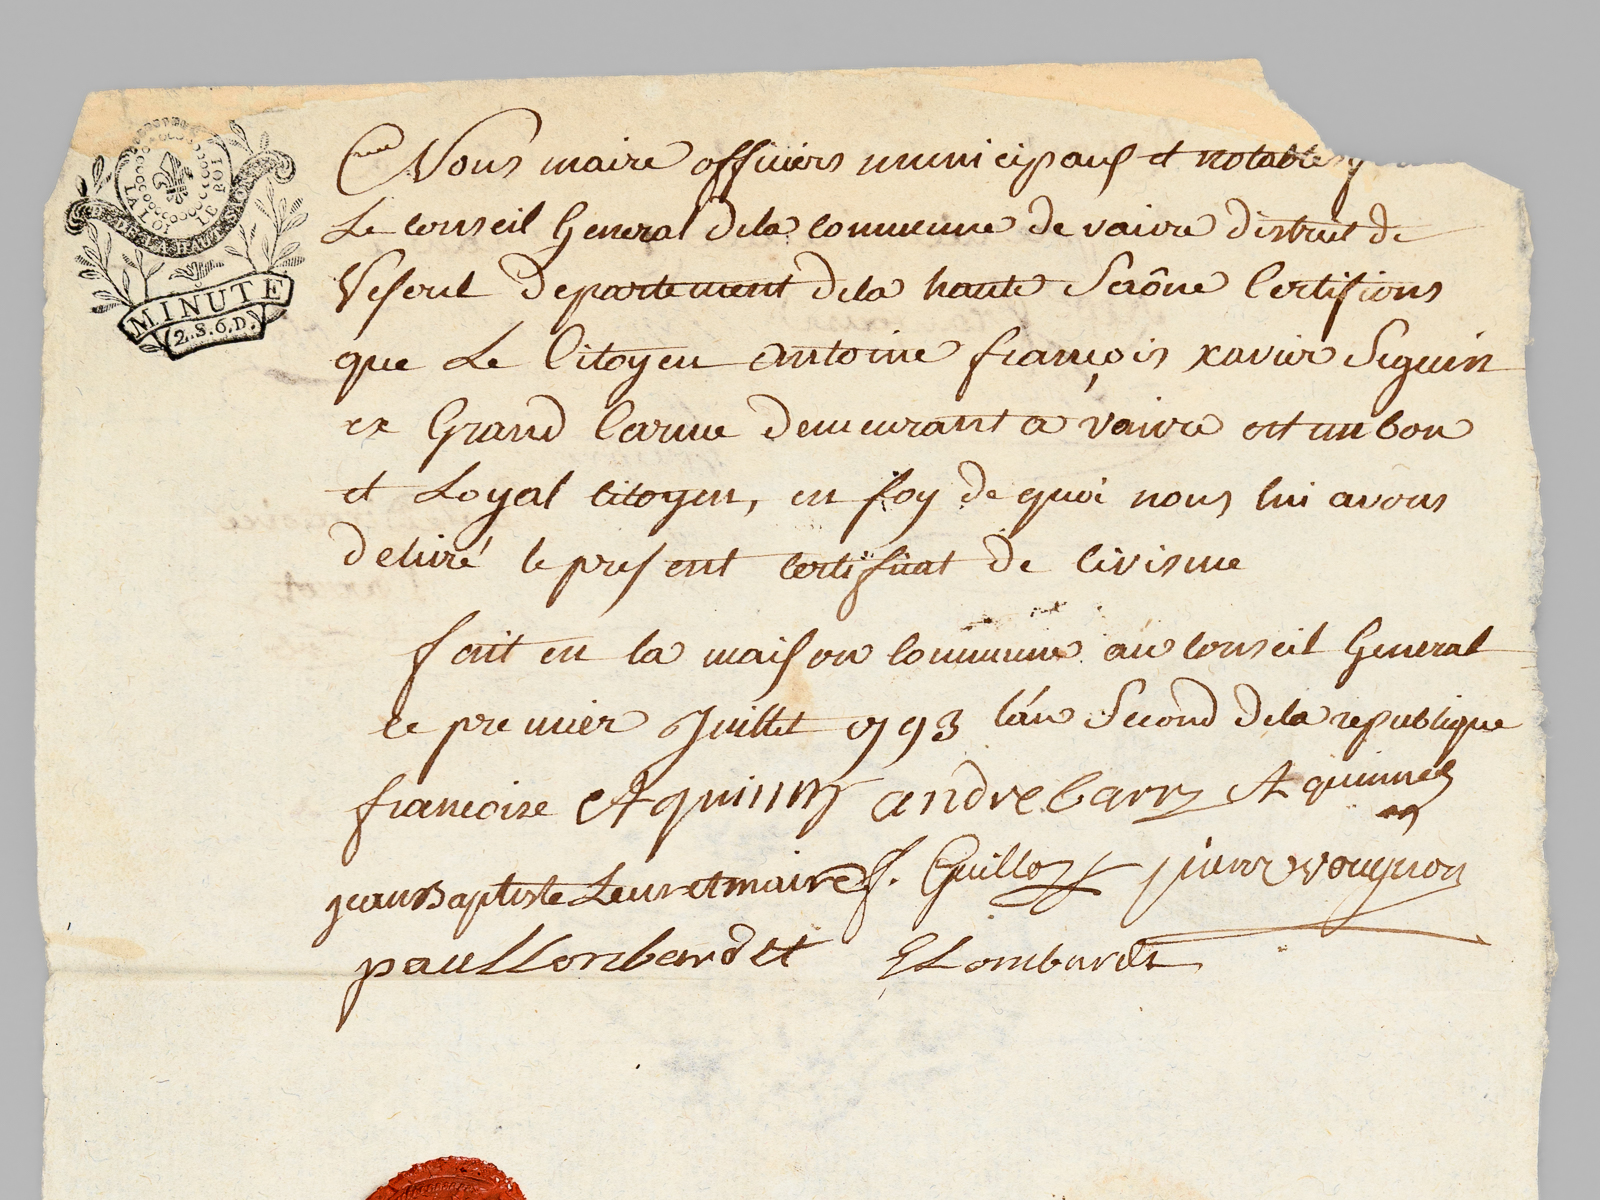 LA LOI LE ROI
DEP. DE LA HAUTE SAONE
MINUTE
2.S.6.D.
Nous maire officiers municipaux et notables
Le conseil General dela commune de vaivre district de
Vesoul departement dela haute Saône Certifions
que Le Citoyen antoine françois xavier Seguin
ex Grand Carme demeurant a vaivre est un bon
et Loyal citoyen, en foy de quoi nous lui avons
delivré le present certificat de civisme
fait en la maison commune au conseil General
ce premier Juillet 1793 l'an Second dela republique
francoise Aquinney andre barry Aquinney
jean Baptiste Leuret maire f. Guilloz pierre vougnon
paul Lombardet E Lombardet